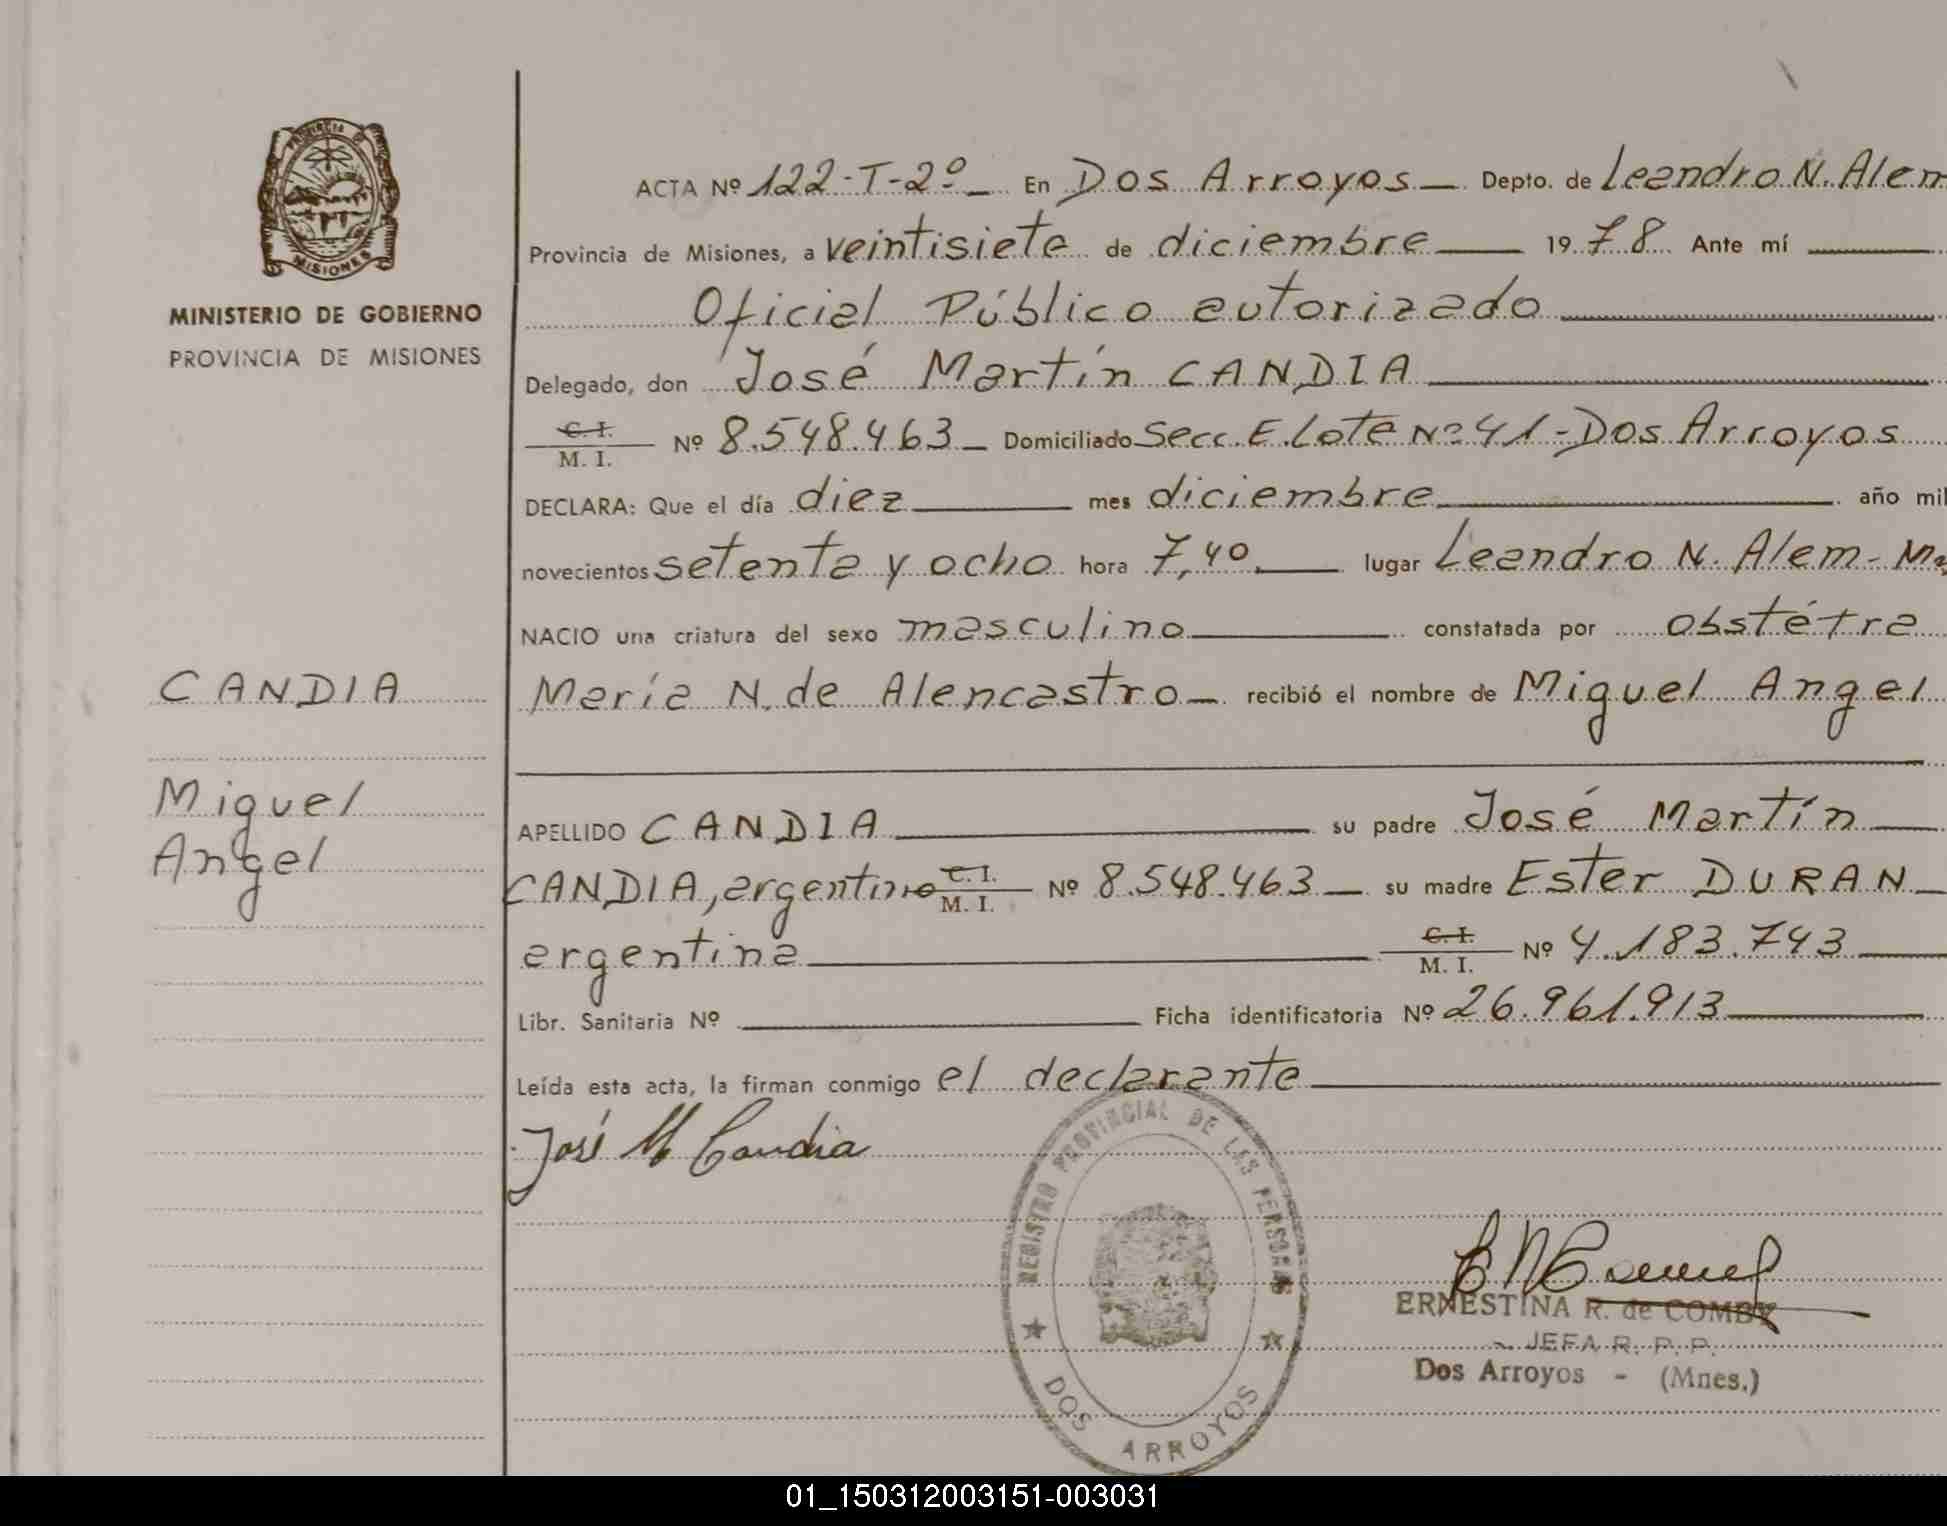 PROVINCIA DE
MISIONES
MINISTERIO DE GOBIERNO
PROVINCIA DE MISIONES
CANDIA
Miguel
Angel
ACTA Nº 122-T-2º En Dos Arroyos Depto. de Leandro N. Alem
Provincia de Misiones, a veintisiete de diciembre 1978 Ante mí
Oficial Público autorizado
Delegado, don José Martín CANDIA
C. I.
M. I. Nº 8.548.463 Domiciliado Secc. E. Lote Nº 41-Dos Arroyos
DECLARA: Que el día diez mes diciembre año mil
novecientos setenta y ocho hora 7,40 lugar Leandro N. Alem-
NACIO una criatura del sexo masculino constatada por obstétra
María N. de Alencastro recibió el nombre de Miguel Angel
APELLIDO CANDIA su padre José Martín
CANDIA, argentino C. I. M. I. Nº 8.548.463 su madre Ester DURAN
argentina C. I. M. I. Nº 4.183.743
Libr. Sanitaria Nº Ficha identificatoria Nº 26.961.913
Leída esta acta, la firman conmigo el declarante
José M Candia
REGISTRO PROVINCIAL DE LAS PERSONAS
DOS ARROYOS
ERNESTINA R. de
JEFA R. P. P.
Dos Arroyos - (Mnes.)
01_150312003151-003031